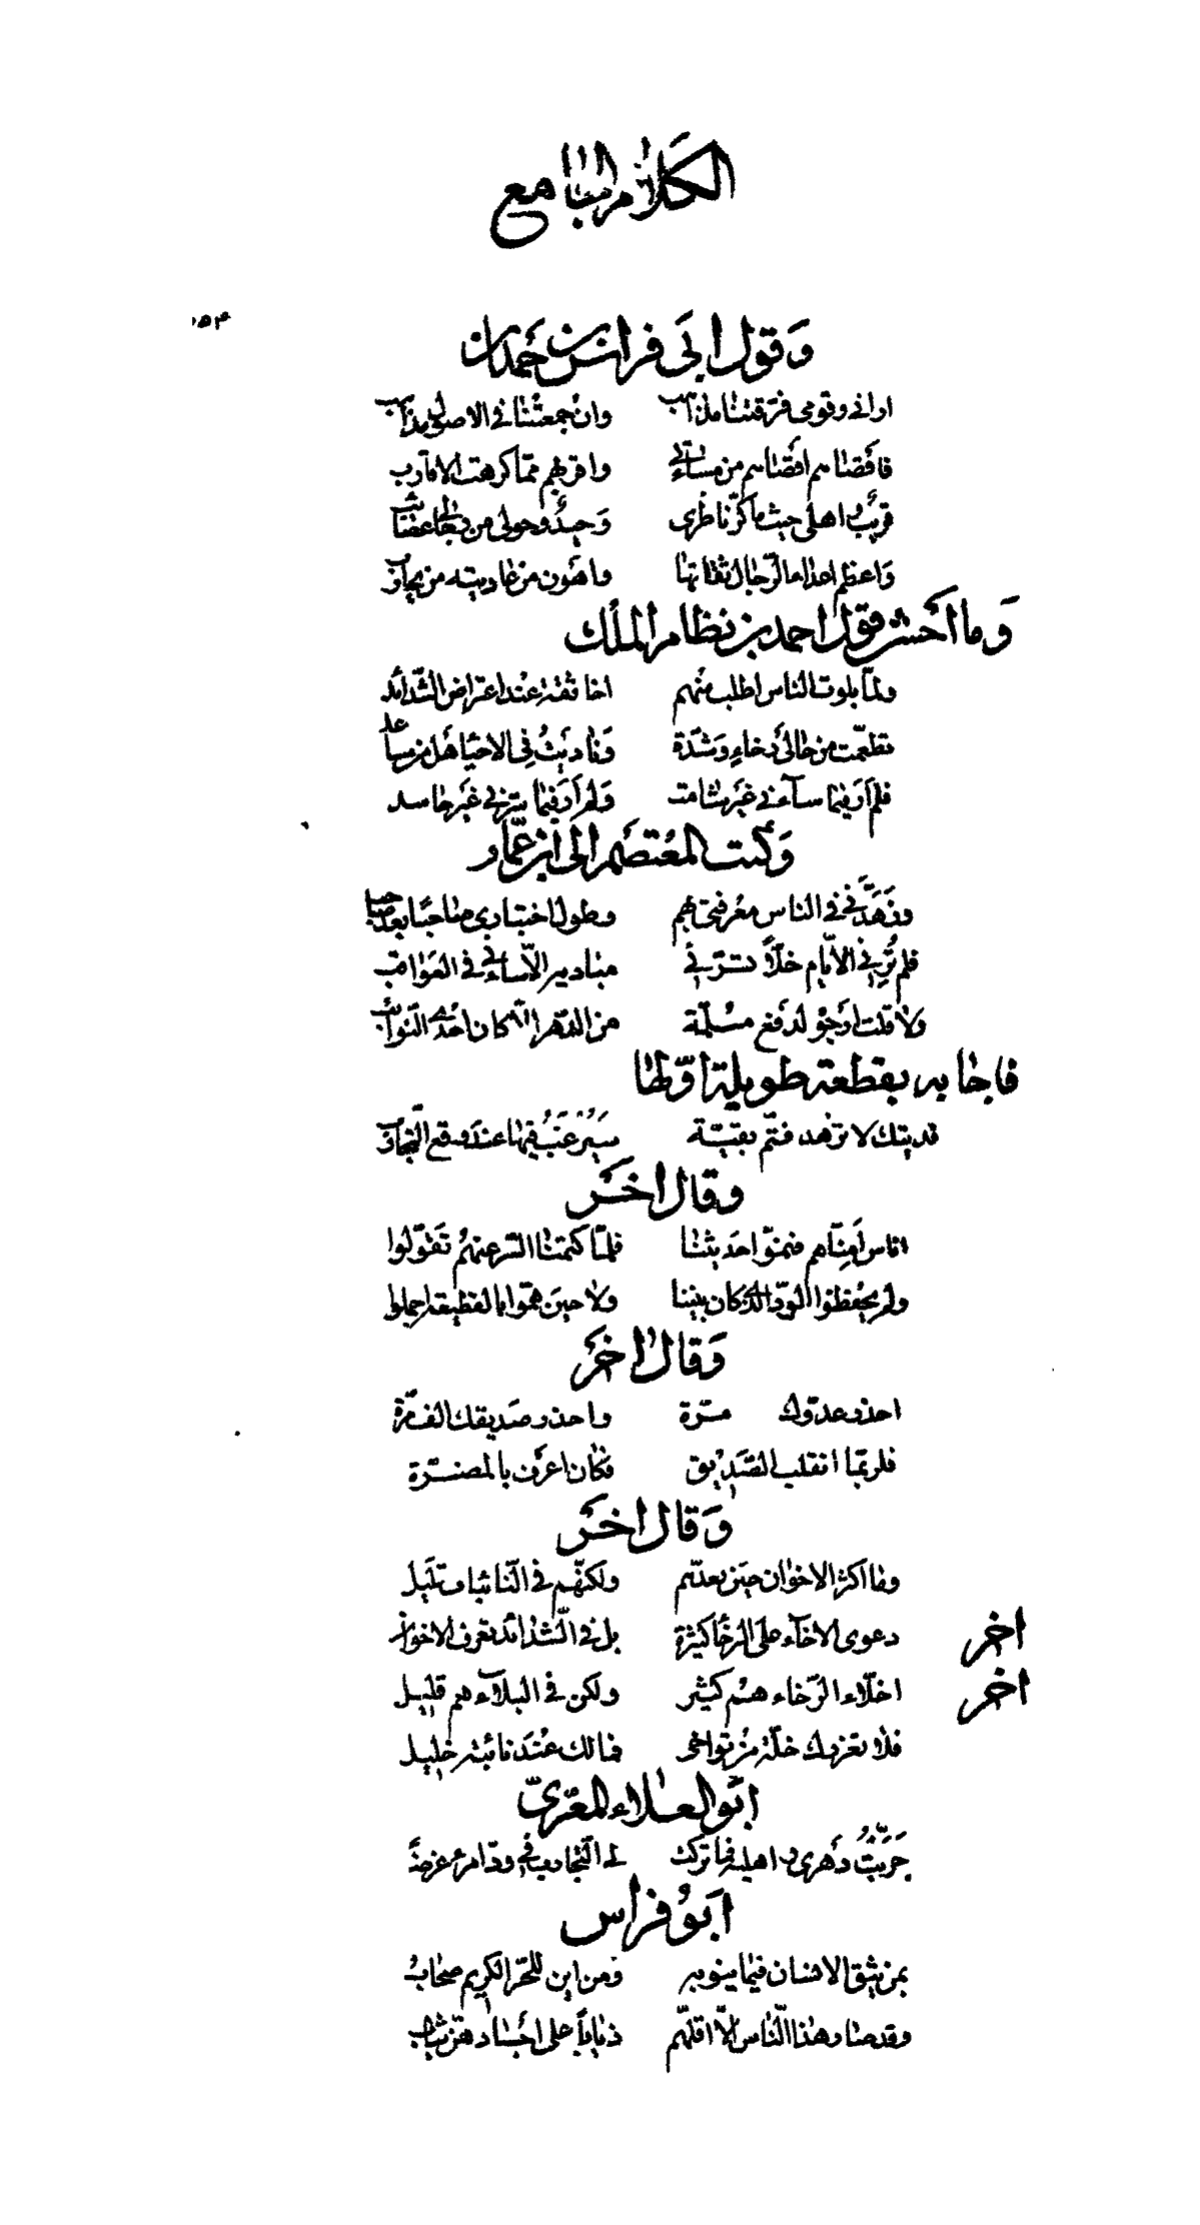 الكلام الجامع
وَقول ابَى فراس بن حَمدان
ارانى وقومى فرّقتنا مذاهب وانْ جمعتْنا فى الاصول مذاهب
فاقصاهم اقصاهم من مساءتى واقربهم ممّا كرهت الاقارب
قريبٌ اهلى حيث ما كرّ ناظرى وَحيدٌ وحولى من رجالى عصائب
وَاعظم اعدا الرّجال ثقاتها واهَون من عاديته من يحارب
وَما احَسن قول احمد بن نظام الملك
ولمّا بلوت الناس اطلب منهم اخا ثقة عنْد اعتراض الشّدائد
تطعّمت من حالى رخاءٍ وشدّة وَناديتُ فِى الاحيا هَل من مساعد
فلم اَر فيما ساءَنى غيَر شامت وَلم اَر فيما سرّنى غيَر حاسد
وَكَتب المعُتصَم الَى ابن عمّار
وزَهَّدَنى فى الناس معْرفتى بهم وطول اختبارى صاحبًا بعد صاحب
فلم تُرِنى الايّام خلّاً تسرّنى مباديه الّا ساءنى فى العَواقب
ولا قلت ارجوْ لدفع مسُلمّة من الدّهر الّا كان احْدى النّوائب
فاجابه بقطعة طويلة اوّلها
فديتك لا تزهد فثمّ بقيّة سَيُرْغَبُ فيها عند وقع التّجارب
وقال اخَر
اناس اَمِنّاهم فنمّوا حدَيثنا فلمّا كتمنا السّر عنهُم تَقوّلوا
ولم يحْفظوا الودّ الّذى كان بيننا ولا حينَ همّوا بالقطيعة اجملوا
وَقال اخَر
احذر عدوّك مرّة واحذر صَديقك الف مرّة
فلربّما انقلب الصّديق فكان اعرَف بالمضرّة
وَقال اخَر
وما اكثر الاخوان حيَن تعدّهم ولكنّهم فى النّائبات قليَل
اخر دعوى الاخآء على الرخا كثيرة بل فى الشّدائد تعرف الاخوان
اخر اخلّاء الرّخاء هُم كثير ولكن فى البلاء هم قليل
فلا تغررك خلّة مَن تواخى فما لك عنْدَ نائبة خليل
ابَو العلاء المعّرىّ
جَرّبَتُ دَهرى واهليه فما تركت لى التّجارب فى ودّ امرء غرضًا
ابَوُ فراس
بمن يثق الانسان فيما ينوبه ومن اين للحّر الكريم صحابُ
وقد صار هذا النّاس الّا اقلّهم ذئاباً على اجْسادهنّ ثياب